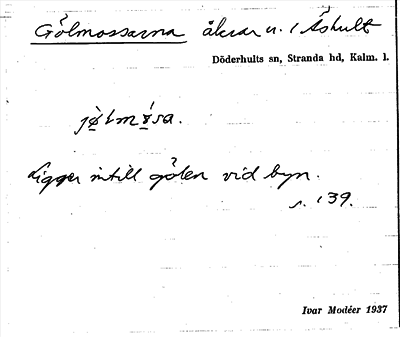 Gölmossarna åkrar u. i Åshult
Döderhults sn, Stranda hd, Kalm. l.
Ligger intill gölen vid byn.
s. 139.
Ivar Modéer 1937